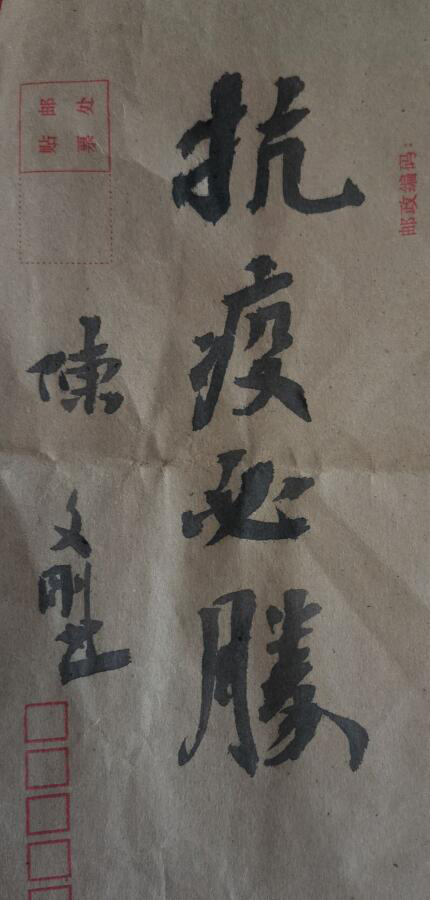 邮政编码:
抗疫必勝
陳文刚
贴邮
票处